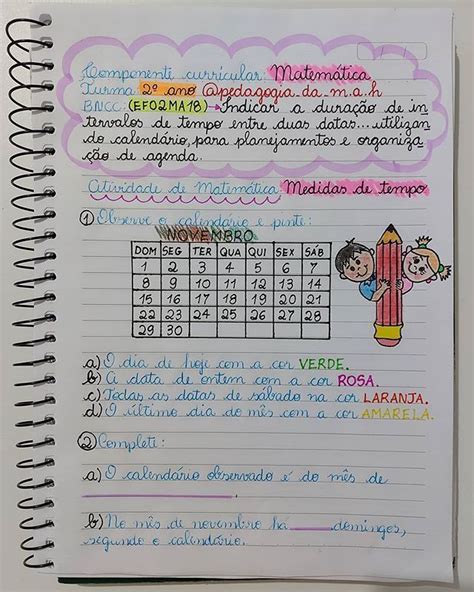 Componente curricular: Matemática
Turma: 2º ano @pedagogia.da.m.a.h
BNCC: (EF02MA18) → Indicar a duração de in
tervalos de tempo entre duas datas... utilizan
do calendário, para planejamentos e organiza
ção de agenda.
Atividade de Matemática: Medidas de tempo
1 Observe o calendário e pinte:
NOVEMBRO
DOM SEG TER QUA QUI SEX SÁB
1 2 3 4 5 6 7
8 9 10 11 12 13 14
15 16 17 18 19 20 21
22 23 24 25 26 27 28
29 30
a) O dia de hoje com a cor VERDE.
b) A data de ontem com a cor ROSA.
c) Todas as datas de sábado na cor LARANJA.
d) O último dia do mês com a cor AMARELA.
2 Complete:
a) O calendário observado é do mês de
b) No mês de novembro há ______ domingos,
segundo o calendário.